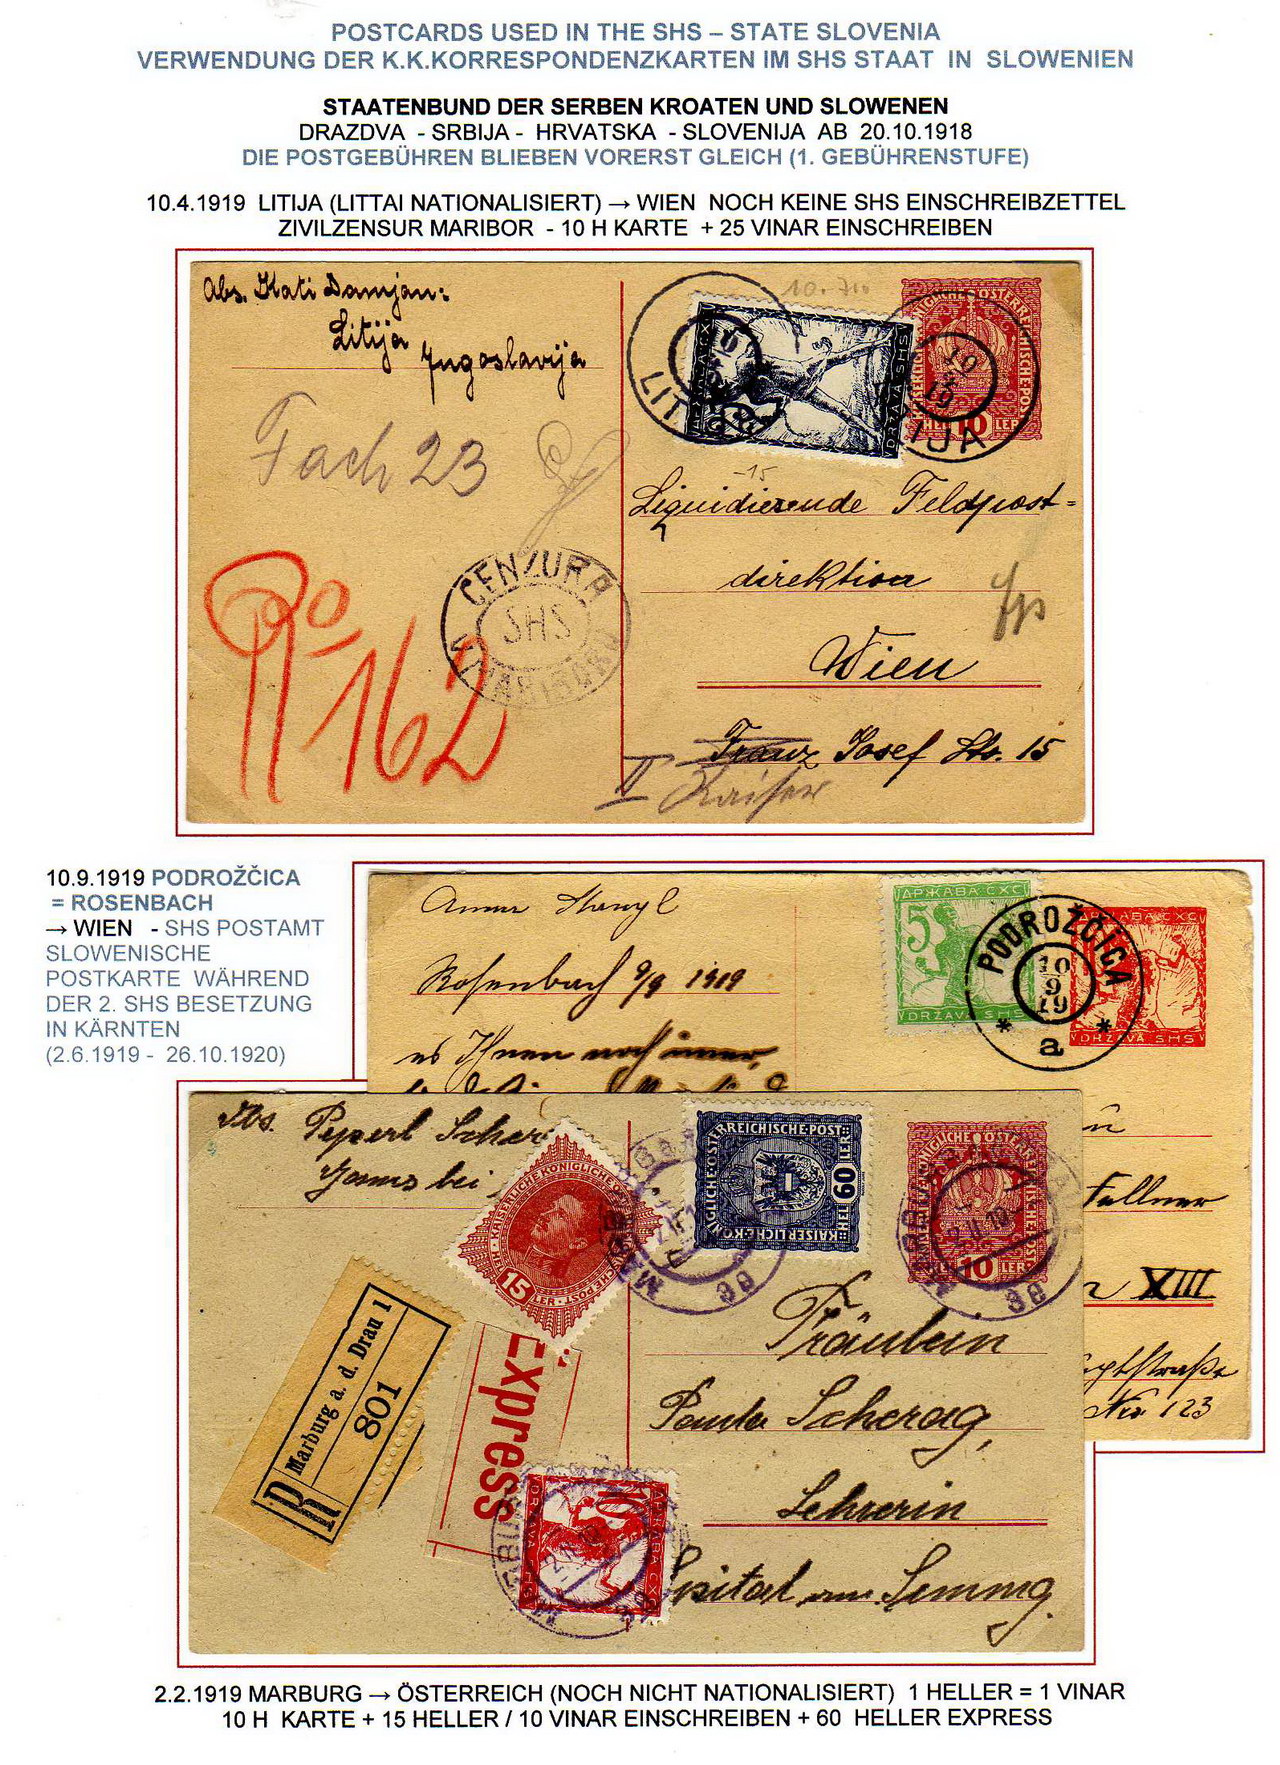 POSTCARDS USED IN THE SHS – STATE SLOVENIA
VERWENDUNG DER K.K.KORRESPONDENZKARTEN IM SHS STAAT IN SLOWENIEN
STAATENBUND DER SERBEN KROATEN UND SLOWENEN
DRAZDVA - SRBIJA - HRVATSKA - SLOVENIJA AB 20.10.1918
DIE POSTGEBÜHREN BLIEBEN VORERST GLEICH (1. GEBÜHRENSTUFE)
10.4.1919 LITIJA (LITTAI NATIONALISIERT) → WIEN NOCH KEINE SHS EINSCHREIBZETTEL
ZIVILZENSUR MARIBOR - 10 H KARTE + 25 VINAR EINSCHREIBEN
Abs. Kati Damjan:
Litija
Jugoslavija
Fach 23
CENZURA
SHS
162
DRŽAVA SHS
10
19
10
HELLER
-15
Liquidierende Feldpost=
direktion
Wien
Franz Josef Str. 15
II Kaiser
10.9.1919 PODROŽČICA
= ROSENBACH
→ WIEN - SHS POSTAMT
SLOWENISCHE
POSTKARTE WÄHREND
DER 2. SHS BESETZUNG
IN KÄRNTEN
(2.6.1919 - 26.10.1920)
Rosenbach 9/9 1919
es Ihnen noch immer,
ДРЖАВА СХС
5
DRŽAVA SHS
PODROŽČICA
10
9
19
* a *
DRŽAVA SHS
Fellner
XIII
Nr. 123
Abs. Peperl
bei
KAISERLICHE KÖNIGLICHE
15
HELLER
KAISERLICH-KÖNIGLICHE-ÖSTERREICHISCHE-POST
60
HELLER
10
HELLER
R
Marburg a. d. Drau 1
801
Express
10
DRŽAVA SHS
Fräulein
Paula Scherag,
Lehrerin
Spital am Semmg.
2.2.1919 MARBURG → ÖSTERREICH (NOCH NICHT NATIONALISIERT) 1 HELLER = 1 VINAR
10 H KARTE + 15 HELLER / 10 VINAR EINSCHREIBEN + 60 HELLER EXPRESS